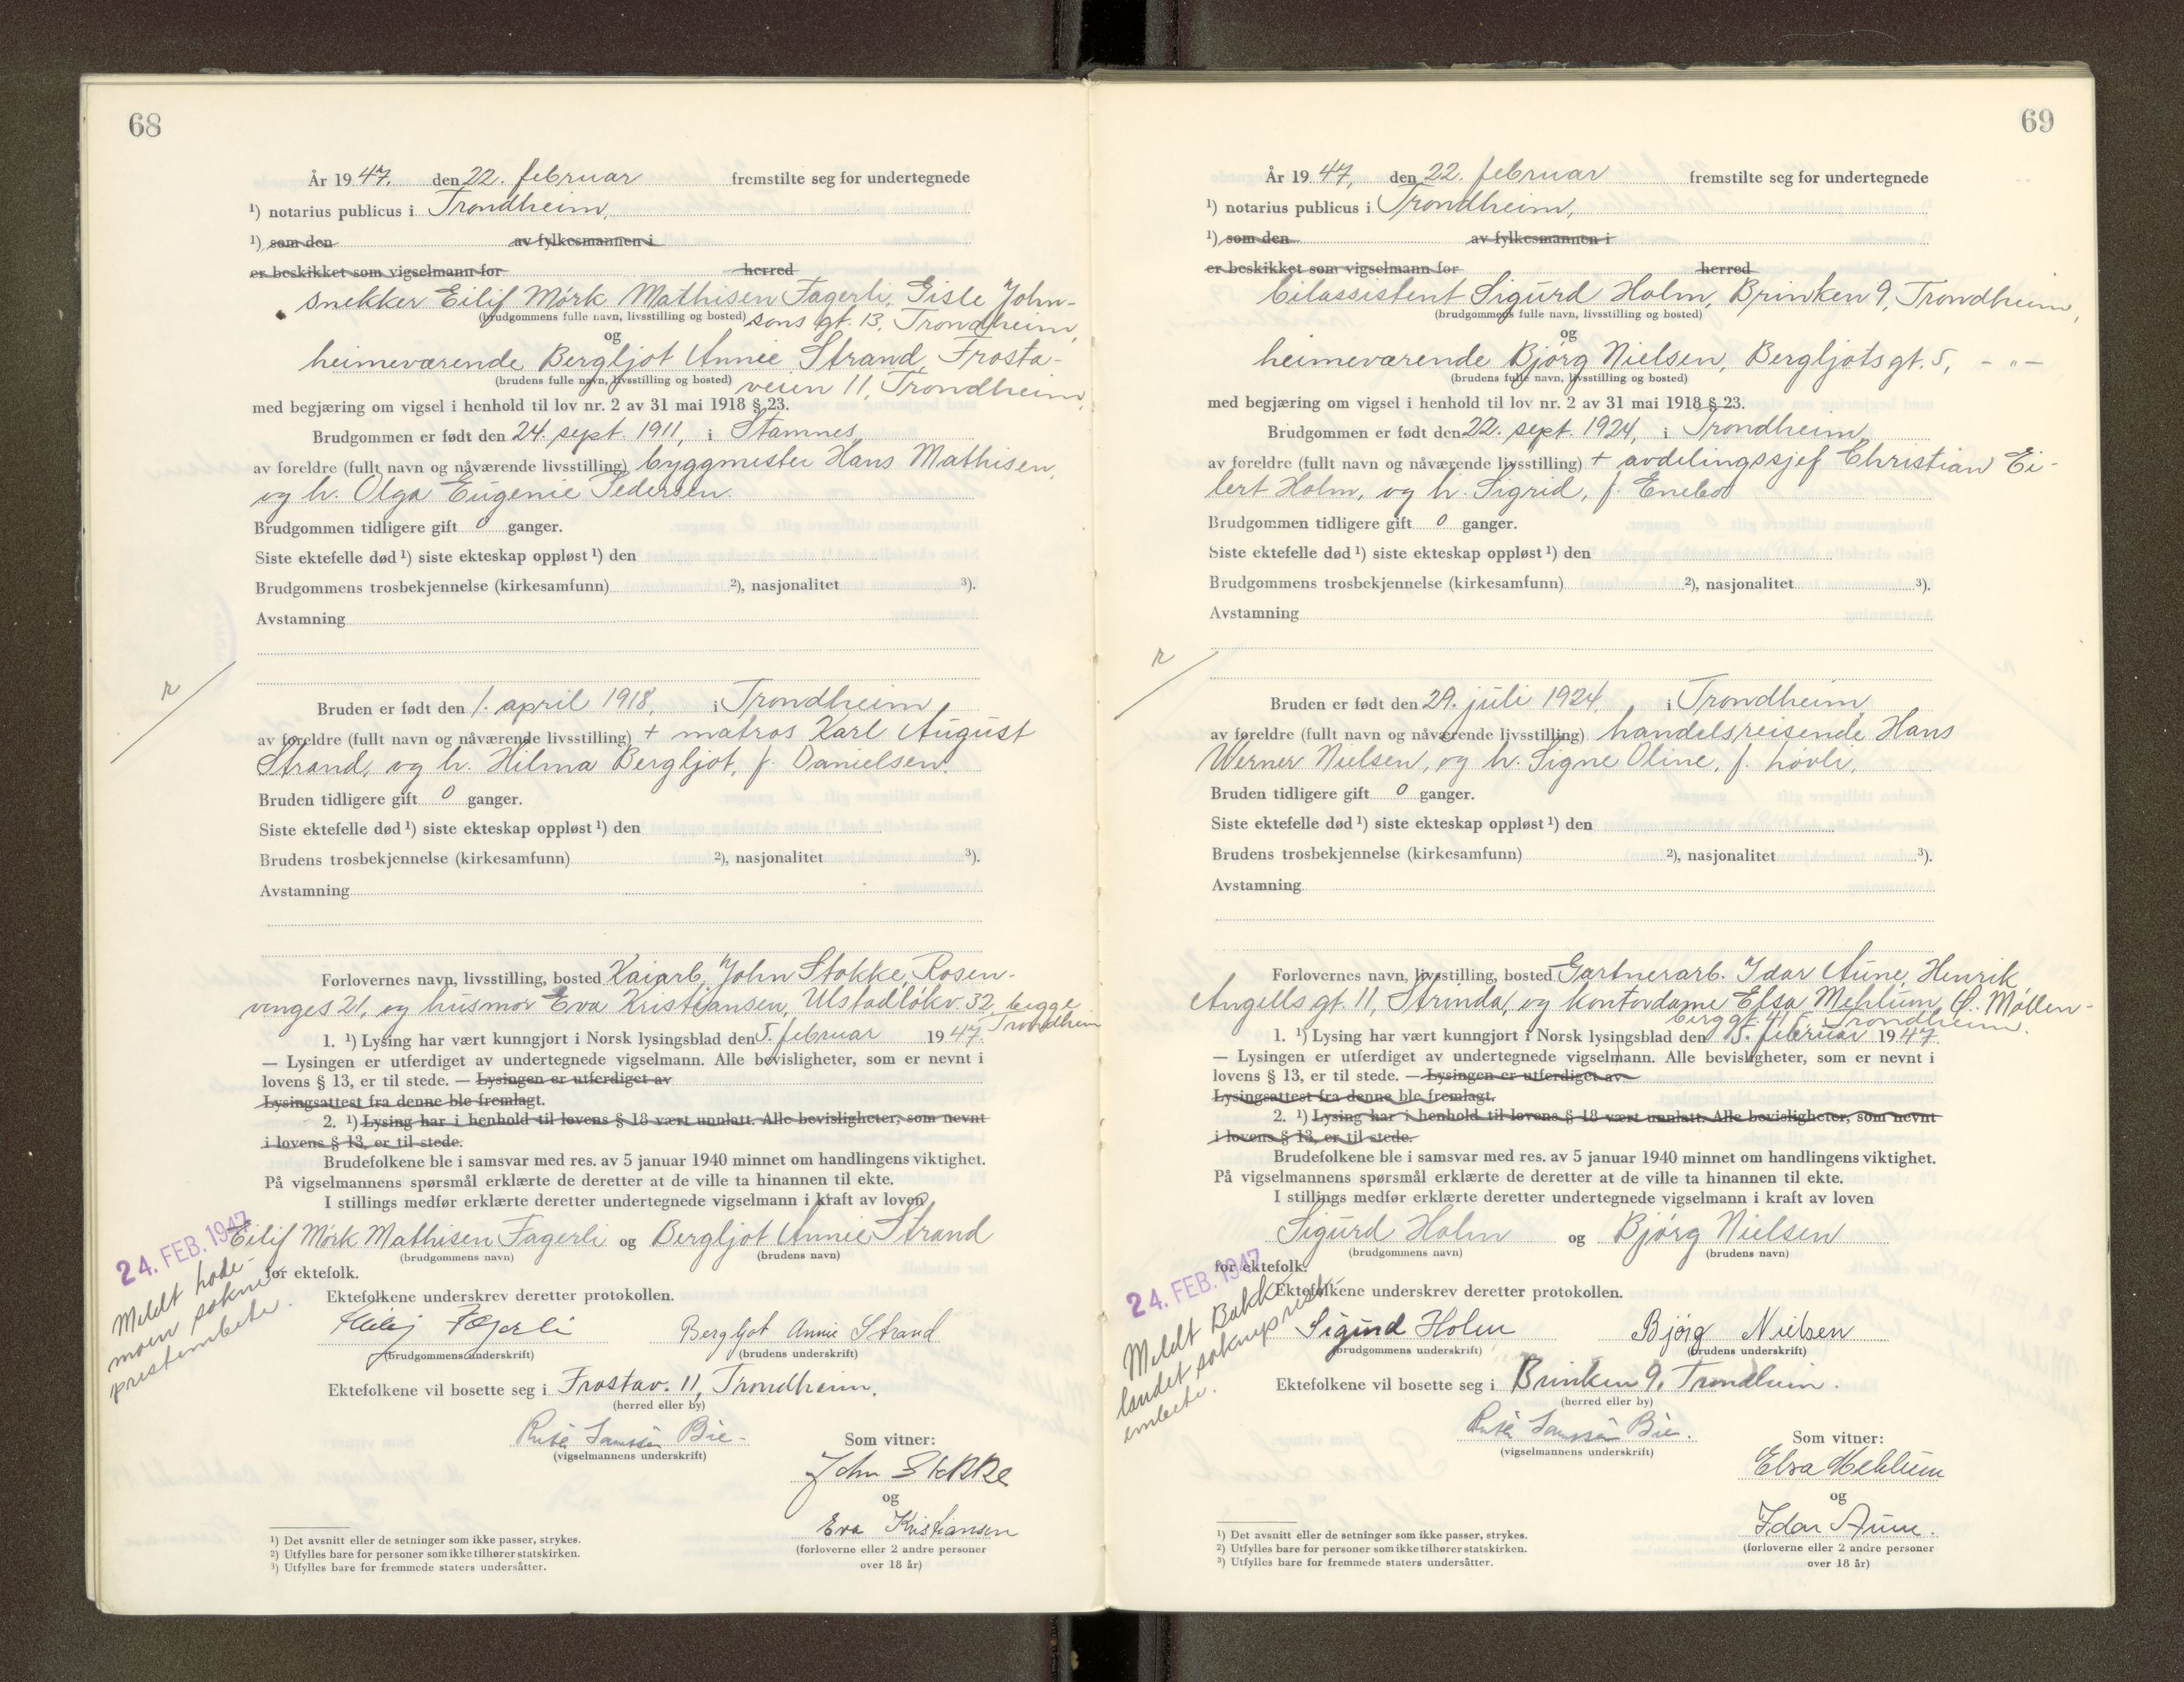 68
År 1947. den 22. februar fremstilte seg for undertegnede
¹) notarius publicus i Trondheim,
¹) som den av fylkesmannen i
er beskikket som vigselmann for herred
snekker Eilif Mørk Mathisen Fagerli, Gisle John-
(brudgommens fulle navn, livsstilling og bosted) sons gt. 13, Trondheim,
og
heimeværende Bergljot Annie Strand, Frosta-
(brudens fulle navn, livsstilling og bosted) veien 11, Trondheim,
med begjæring om vigsel i henhold til lov nr. 2 av 31 mai 1918 § 23.
Brudgommen er født den 24. sept. 1911, i Stamnes,
av foreldre (fullt navn og nåværende livsstilling) byggmester Hans Mathisen,
og h. Olga Eugenie Pedersen.
Brudgommen tidligere gift 0 ganger.
Siste ektefelle død ¹) siste ekteskap oppløst ¹) den
Brudgommens trosbekjennelse (kirkesamfunn) ²), nasjonalitet ³).
Avstamning
Bruden er født den 1. april 1918, i Trondheim
av foreldre (fullt navn og nåværende livsstilling) + matros Karl August
Strand, og h. Hilma Bergljot, f. Danielsen.
Bruden tidligere gift 0 ganger.
Siste ektefelle død ¹) siste ekteskap oppløst ¹) den
Brudens trosbekjennelse (kirkesamfunn) ²), nasjonalitet ³).
Avstamning
Forlovernes navn, livsstilling, bosted Kaiarb. John Stokke, Rosen-
vinges 21, og husmor Eva Kristiansen, Ulstadløkv. 32, begge
Trondheim
1. ¹) Lysing har vært kunngjort i Norsk lysingsblad den 5. februar 1947.
— Lysingen er utferdiget av undertegnede vigselmann. Alle bevisligheter, som er nevnt i
lovens § 13, er til stede. — Lysingen er utferdiget av
Lysingsattest fra denne ble fremlagt.
2. ¹) Lysing har i henhold til lovens § 18 vært unnlatt. Alle bevisligheter, som nevnt
i lovens § 13, er til stede.
Brudefolkene ble i samsvar med res. av 5 januar 1940 minnet om handlingens viktighet.
På vigselmannens spørsmål erklærte de deretter at de ville ta hinannen til ekte.
I stillings medfør erklærte deretter undertegnede vigselmann i kraft av loven
Eilif Mørk Mathisen Fagerli og Bergljot Annie Strand
(brudgommens navn) (brudens navn)
for ektefolk.
24. FEB. 1947
Meldt Lade-
moen sokne-
prestembete.
Ektefolkene underskrev deretter protokollen.
Eilif Fagerli Bergljot Annie Strand
(brudgommens underskrift) (brudens underskrift)
Ektefolkene vil bosette seg i Frostav. 11, Trondheim.
(herred eller by)
(vigselmannens underskrift)
Som vitner:
John Stokke
og
Eva Kristiansen
(forloverne eller 2 andre personer
over 18 år)
¹) Det avsnitt eller de setninger som ikke passer, strykes.
²) Utfylles bare for personer som ikke tilhører statskirken.
³) Utfylles bare for fremmede staters undersåtter.
69
År 1947, den 22. februar fremstilte seg for undertegnede
¹) notarius publicus i Trondheim,
¹) som den av fylkesmannen i
er beskikket som vigselmann for herred
bilassistent Sigurd Holm, Brinken 9, Trondheim,
(brudgommens fulle navn, livsstilling og bosted)
og
heimeværende Bjørg Nielsen, Bergljotsgt. 5, - " -
(brudens fulle navn, livsstilling og bosted)
med begjæring om vigsel i henhold til lov nr. 2 av 31 mai 1918 § 23.
Brudgommen er født den 22. sept. 1924, i Trondheim
av foreldre (fullt navn og nåværende livsstilling) + avdelingssjef Christian Ei-
lert Holm, og h. Sigrid, f. Enebo
Brudgommen tidligere gift 0 ganger.
Siste ektefelle død ¹) siste ekteskap oppløst ¹) den
Brudgommens trosbekjennelse (kirkesamfunn) ²), nasjonalitet ³).
Avstamning
Bruden er født den 29. juli 1924, i Trondheim
av foreldre (fullt navn og nåværende livsstilling) handelsreisende Hans
Werner Nielsen, og h. Signe Oline, f. Løvli.
Bruden tidligere gift 0 ganger.
Siste ektefelle død ¹) siste ekteskap oppløst ¹) den
Brudens trosbekjennelse (kirkesamfunn) ²), nasjonalitet ³).
Avstamning
Forlovernes navn, livsstilling, bosted Gartnerarb. Idar Aune, Henrik
Angells gt. 11, Strinda, og kontordame Elsa Mehlum, Th. Møllen-
berg gt. 41 c, Trondheim.
1. ¹) Lysing har vært kunngjort i Norsk lysingsblad den 5. februar 1947.
— Lysingen er utferdiget av undertegnede vigselmann. Alle bevisligheter, som er nevnt i
lovens § 13, er til stede. — Lysingen er utferdiget av
Lysingsattest fra denne ble fremlagt.
2. ¹) Lysing har i henhold til lovens § 18 vært unnlatt. Alle bevisligheter, som nevnt
i lovens § 13, er til stede.
Brudefolkene ble i samsvar med res. av 5 januar 1940 minnet om handlingens viktighet.
På vigselmannens spørsmål erklærte de deretter at de ville ta hinannen til ekte.
I stillings medfør erklærte deretter undertegnede vigselmann i kraft av loven
Sigurd Holm og Bjørg Nielsen
(brudgommens navn) (brudens navn)
for ektefolk.
24. FEB. 1947
Meldt Bakk-
landet sokneprest-
embete.
Ektefolkene underskrev deretter protokollen.
Sigurd Holm Bjørg Nielsen
(brudgommens underskrift) (brudens underskrift)
Ektefolkene vil bosette seg i Brinken 9, Trondheim.
(herred eller by)
(vigselmannens underskrift)
Som vitner:
Elsa Mehlum
og
Idar Aune.
(forloverne eller 2 andre personer
over 18 år)
¹) Det avsnitt eller de setninger som ikke passer, strykes.
²) Utfylles bare for personer som ikke tilhører statskirken.
³) Utfylles bare for fremmede staters undersåtter.